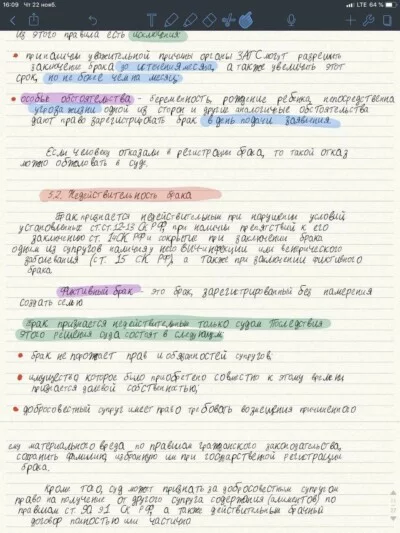 16:09 Чт 22 нояб.
LTE 64 %
из этого правила есть исключения
• при наличии уважительной причины органы ЗАГС могут разрешить
заключение брака до истечения месяца, а также увеличить этот
срок, но не более чем на месяц
• особые обстоятельства - беременность, рождение ребенка, непосредственна
угроза жизни одной из сторон и другие аналогичные обстоятельства
дают право зарегистрировать брак в день подачи заявления.
Если человеку отказали в регистрации брака, то такой отказ
можно обжаловать в суде.
5.2. Недействительность брака
Брак признается недействительным при нарушении условий
установленных ст.ст. 12-13 СК РФ, при наличии препятствий к его
заключению ст. 14 СК РФ и сокрытие при заключении брака
одним из супругов наличия у него ВИЧ-инфекции или венерического
заболевания (ст. 15 СК РФ), а также при заключении фиктивного
брака
Фиктивный брак - это брак, зарегистрированный без намерения
создать семью
Брак признается недействительным только судом. Последствия
этого решения суда состоят в следующем:
• брак не порождает прав и обязанностей супругов;
• имущество которое было приобретено совместно к этому времени
признается долевой собственностью;
• добросовестный супруг имеет право требовать возмещения причиненного
ему материального вреда по правилам гражданского законодательства,
сохранить фамилию, избранную им при государственной регистрации
брака.
Кроме того, суд может признать за добросовестным супругом
право на получение от другого супруга содержания (алиментов) по
правилам ст. 90 91 СК РФ, а также действительным брачный
договор полностью или частично